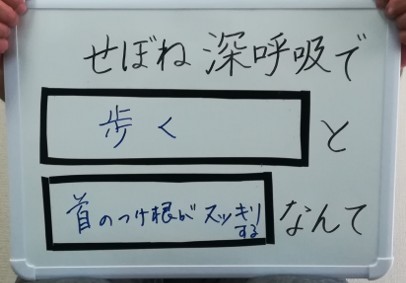 せぼね 深呼吸で
歩く と
首のつけ根が スッキリ なんて
する